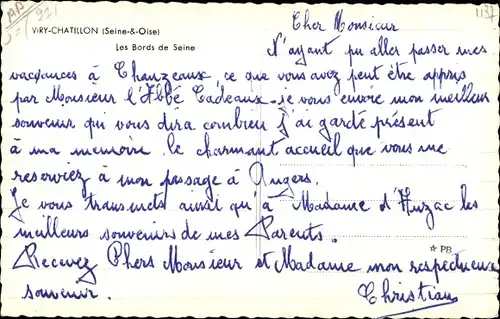 AP 921
1137
VIRY-CHATILLON (Seine-&-Oise)
Les Bords de Seine
Cher Monsieur
N'ayant pu aller passer mes
vacances à Chanzeaux, ce que vous avez peut être appris
par Monsieur l'Abbé Cadeaux - je vous envoie mon meilleur
souvenir qui vous dira combien j'ai gardé présent
à ma memoire le charmant accueil que vous me
reserviez à mon passage à Angers.
Je vous transmets aussi qu'à Madame d'Auzac les
meilleurs souvenirs de mes Parents.
* PR
Recevez Chers Monsieur et Madame mon respectueux
souvenir.
Christian